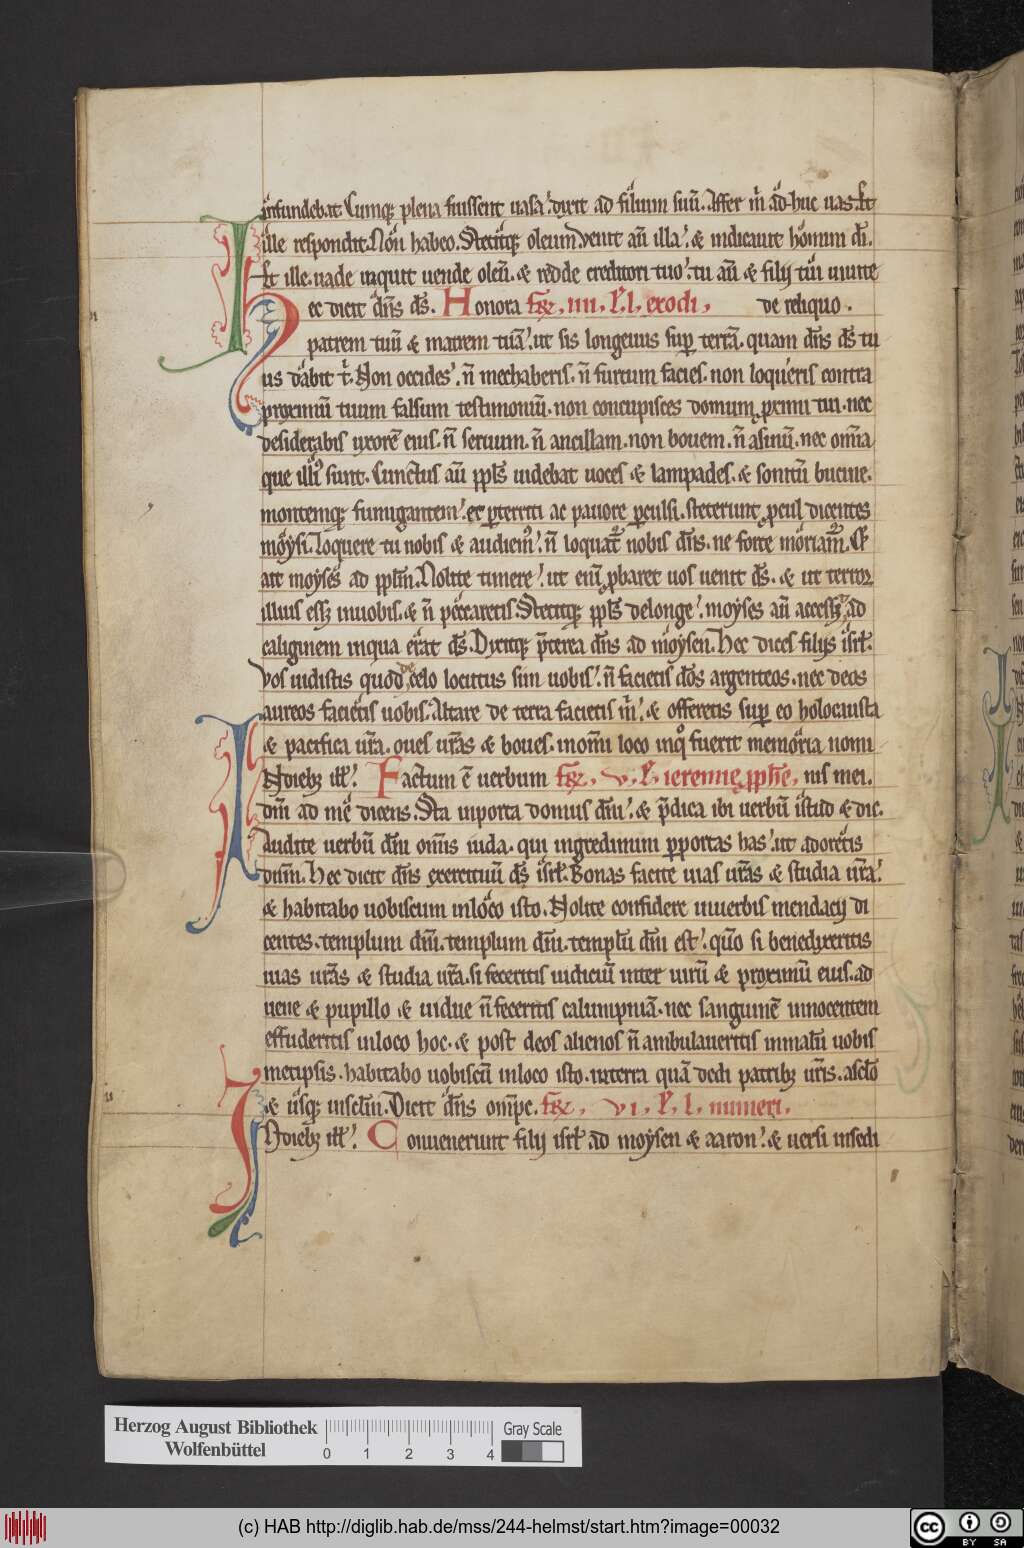 infundebat. Cumq; plena fuissent uasa. dixit ad filium suū. Affer m̄ ad huc uas. Et
ille respondit. Nōn habeo. Stetitq; oleum. Uenit aū illa. & indicauit homini dī.
Et ille. uade inquit uende oleū. & redde creditori tuo. tu aū & filij tui uiuite
ec dicit dn̄s ds̄. Honora de reliquo.
patrem tuū & matrem tuā. ut sis longeuus sup terrā. quam dn̄s ds̄ tu
us dabit t. Non occides. n̄ mechaberis. n̄ furtum facies. non loqueris contra
proximū tuum falsum testimoniū. non concupisces domum pximi tui. nec
desiderabis uxorē eius. n̄ seruum. n̄ ancillam. non bouem. n̄ asinū. nec omīa
que illi' sunt. Cunctus aū ppl̄s uidebat uoces & lampades. & sonitū bucine.
montemq; fumigantem. et pterriti ac pauore pculsi. steterunt pcul dicentes
moysi. loquere tu nobis & audiem'. n̄ loquat' nobis dn̄s. ne forte moriam'. Et
ait moyses ad ppl̄m. Nolite timere. ut eni pbaret uos uenit ds̄. & ut terror
illius esset inuobis. & n̄ peccaretis. Stetitq; ppl̄s delonge. moyses aū accessit ad
caliginem inqua erat ds̄. Dixitq; p̄terea dn̄s ad moysen. Hec dices filijs isrl̄.
Vos uidistis quod de celo locutus sim uobis. n̄ facietis deos argenteos. nec deos
aureos facietis uobis. Altare de terra facietis m̄. & offeretis sup eo holocausta
& pacifica ur̄a. oues ur̄as & boues. inom̄i loco inq° fuerit memoria nomi
N dieb; ill'. Factum ē uerbum nis mei.
dn̄i ad me dicens. Sta inporta domus dn̄i. & p̄dica ibi uerbū istud & dic.
Audite uerbū dn̄i omīs iuda. qui ingredimini pportas has. ut adoretis
dn̄m. Hec dicit dn̄s exercituū ds̄ isrl̄. Bonas facite uias ur̄as & studia ur̄a.
& habitabo uobiscum inloco isto. Nolite confidere inuerbis mendacij di
centes. templum dn̄i. templum dn̄i. templū dn̄i est. qm̄ si benedixeritis
uias ur̄as & studia ur̄a. si feceritis iudiciū inter uirū & proximū eius. ad
uene & pupillo & uidue n̄ feceritis calumpniā. nec sanguinē innocentem
effuderitis inloco hoc. & post deos alienos n̄ ambulaueritis inmalū uobis
metipsis. habitabo uobiscū inloco isto. interra quā dedi patrib; ur̄is. asclo
& usq; insclm̄. Dicit dn̄s omp̄c. fr̄. vi. l. l. numeri.
N dieb; ill'. Conuenerunt filij isrl̄ ad moysen & aaron. & uersi insedi
Herzog August Bibliothek
Wolfenbüttel
0 1 2 3 4
Gray Scale
(c) HAB http://diglib.hab.de/mss/244-helmst/start.htm?image=00032
cc BY SA